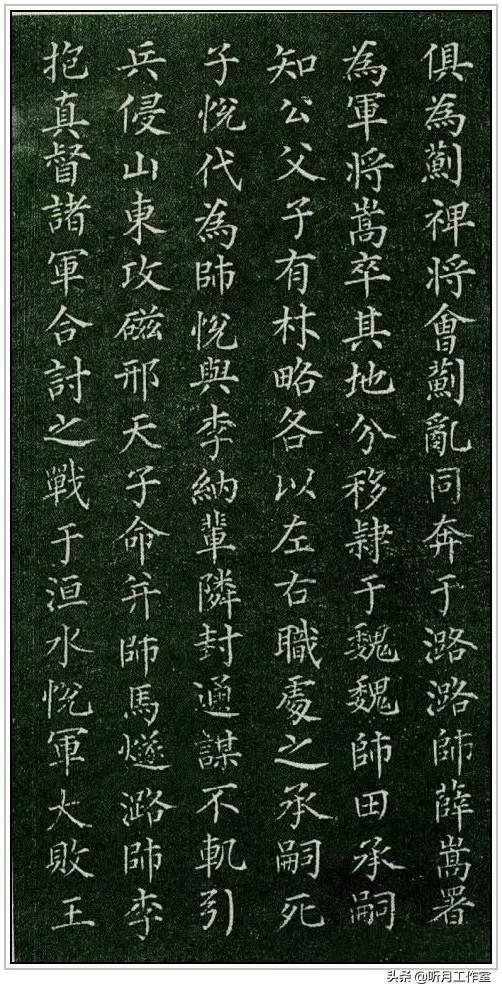 俱為薊裨將會薊亂同奔于潞潞帥薛嵩署
為軍將嵩卒其地分移隸于魏魏帥田承嗣
知公父子有材略各以左右職處之承嗣死
子悅代為帥悅與李納輩隣封通謀不軌引
兵侵山東攻磁邢天子命并帥馬燧潞帥李
抱真督諸軍合討之戰于洹水悅軍大敗王
头条 @听月工作室